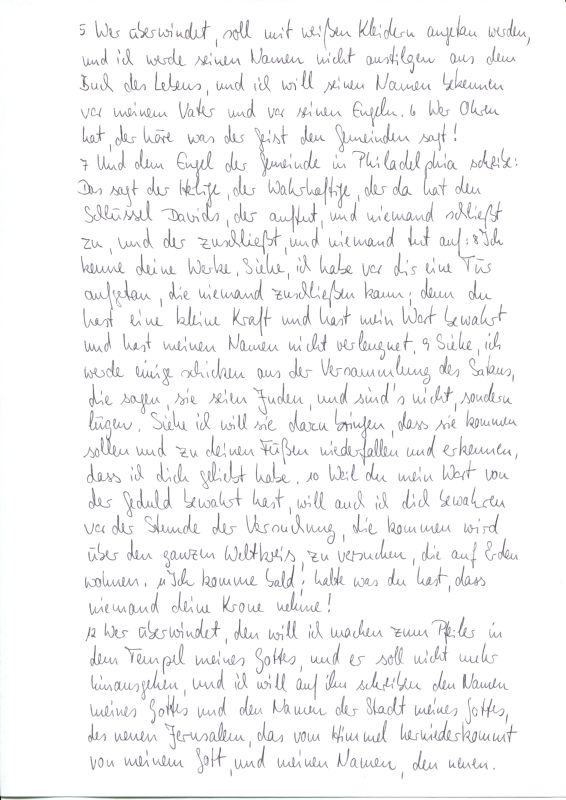 5 Wer überwindet, soll mit weißen Kleidern angetan werden,
und ich werde seinen Namen nicht austilgen aus dem
Buch des Lebens, und ich will seinen Namen bekennen
vor meinem Vater und vor seinen Engeln. 6 Wer Ohren
hat, der höre was der Geist den Gemeinden sagt!
7 Und dem Engel der Gemeinde in Philadelphia schreibe:
Das sagt der Heilige, der Wahrhaftige, der da hat den
Schlüssel Davids, der auftut, und niemand schließt
zu, und der zuschließt, und niemand tut auf: 8 Ich
kenne deine Werke. Siehe, ich habe vor dir eine Tür
aufgetan, die niemand zuschließen kann; denn du
hast eine kleine Kraft und hast mein Wort bewahrt
und hast meinen Namen nicht verleugnet. 9 Siehe, ich
werde einige schicken aus der Versammlung des Satans,
die sagen, sie seien Juden, und sind's nicht, sondern
lügen. Siehe ich will sie dazu bringen, dass sie kommen
sollen und zu deinen Füßen niederfallen und erkennen,
dass ich dich geliebt habe. 10 Weil du mein Wort von
der Geduld bewahrt hast, will auch ich dich bewahren
vor der Stunde der Versuchung, die kommen wird
über den ganzen Weltkreis, zu versuchen, die auf Erden
wohnen. 11 Ich komme bald; halte was du hast, dass
niemand deine Krone nehme!
12 Wer überwindet, den will ich machen zum Pfeiler in
dem Tempel meines Gottes, und er soll nicht mehr
hinausgehen, und ich will auf ihn schreiben den Namen
meines Gottes und den Namen der Stadt meines Gottes,
des neuen Jerusalem, das vom Himmel herniederkommt
von meinem Gott, und meinen Namen, den neuen.